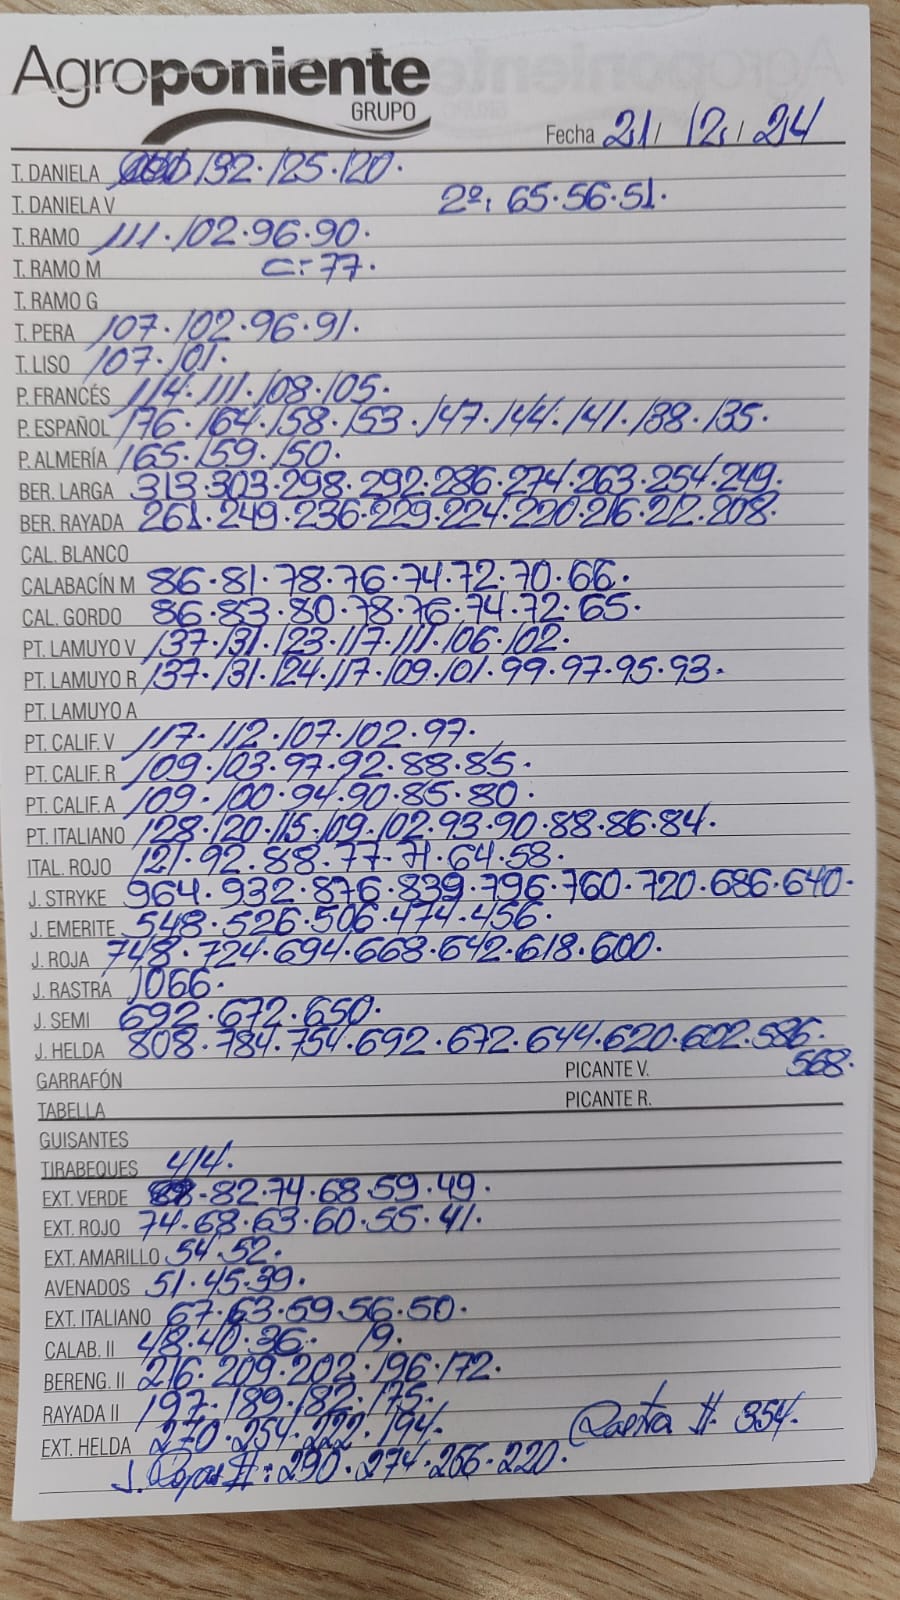 Agroponiente
GRUPO
Fecha 21/12/24
T. DANIELA 132·125·120·
T. DANIELA V 2º: 65·56·51·
T. RAMO 111·102·96·90·
T. RAMO M C=77·
T. RAMO G
T. PERA 107·102·96·91·
T. LISO 107·101·
P. FRANCÉS 114·111·108·105·
P. ESPAÑOL 176·164·158·153·147·144·141·138·135·
P. ALMERÍA 165·159·150·
BER. LARGA 313·303·298·292·286·274·263·254·249·
BER. RAYADA 261·249·236·229·224·220·216·212·208·
CAL. BLANCO
CALABACÍN M 86·81·78·76·74·72·70·66·
CAL. GORDO 86·83·80·78·76·74·72·65·
PT. LAMUYO V 137·131·123·117·111·106·102·
PT. LAMUYO R 137·131·124·117·109·101·99·97·95·93·
PT. LAMUYO A
PT. CALIF. V 117·112·107·102·97·
PT. CALIF. R 109·103·97·92·88·85·
PT. CALIF. A 109·100·94·90·85·80·
PT. ITALIANO 128·120·115·109·102·93·90·88·86·84·
ITAL. ROJO 121·92·88·77·71·64·58·
J. STRYKE 964·932·876·839·796·760·720·686·640·
J. EMERITE 548·526·506·474·456·
J. ROJA 748·724·694·668·642·618·600·
J. RASTRA 1066·
J. SEMI 692·672·650·
J. HELDA 808·784·754·692·672·644·620·602·586·
GARRAFÓN PICANTE V. 568·
TABELLA PICANTE R.
GUISANTES
TIRABEQUES 414·
EXT. VERDE 82·74·68·59·49·
EXT. ROJO 74·68·63·60·55·41·
EXT. AMARILLO 54·52·
AVENADOS 51·45·39·
EXT. ITALIANO 67·63·59·56·50·
CALAB. II 48·40·36· 19·
BERENG. II 216·209·202·196·172·
RAYADA II 197·189·182·175·
EXT. HELDA 270·254·222·194· Rastra II· 354·
J. Rojas II: 290·274·256·220·